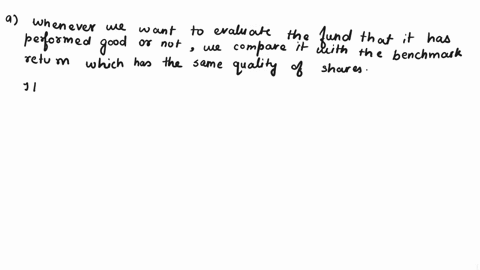 a) Whenever we want to evaluate the fund that it has
performed good or not, we compare it with the benchmark
return which has the same quality of shares.